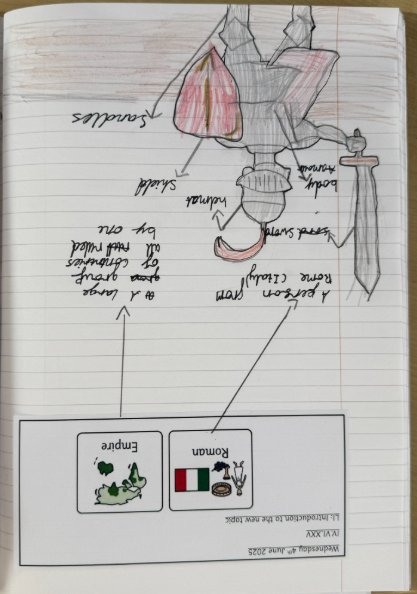 Wednesday 4th June 2025
IV.VI.XXV
LI: Introduction to the new topic
Roman
Empire
A person from
Rome (Italy)
A large
group
of countries
all ruled
by one
sword
helmat
body
shield
Sandles